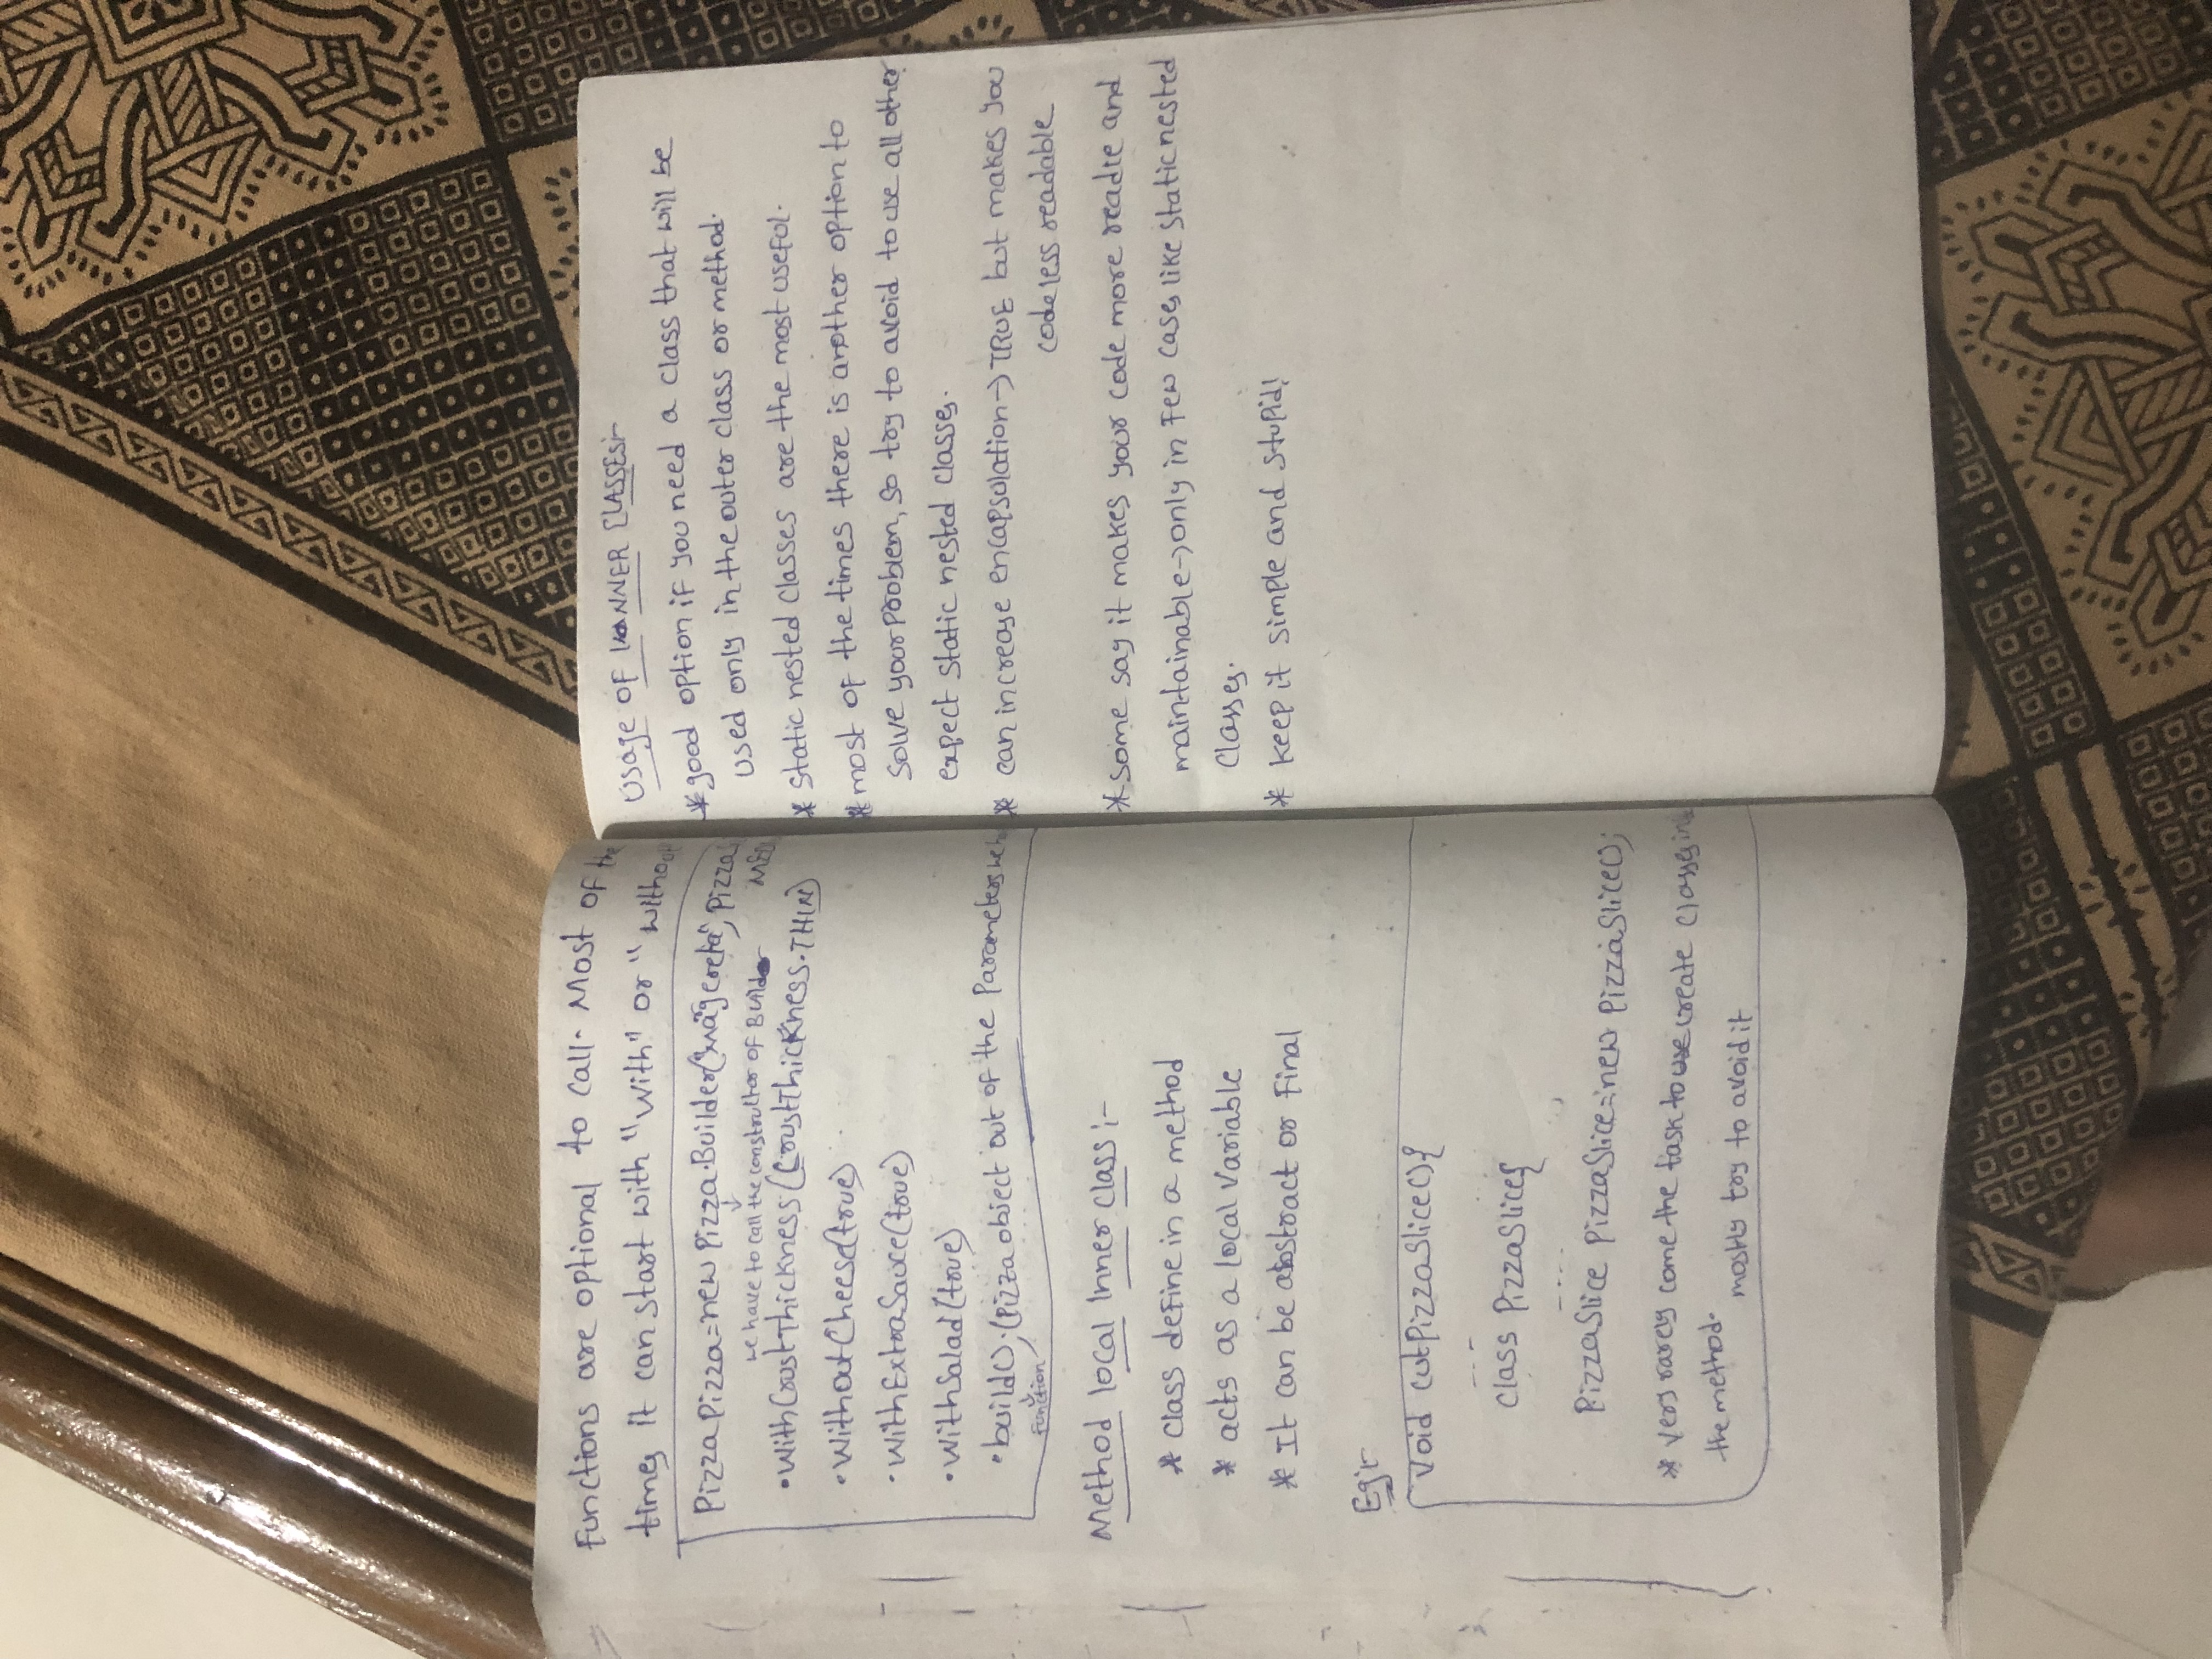 Functions are optional to call. Most of the
times it can start with "With" or "without
Pizza Pizza=new Pizza.Builder("Magereta", Pizza
we have to call the constructor of Builder
.WithCrustThickness(CrustThickness.THIN)
.WithoutCheese(true)
.WithExtraSauce(true)
.WithSalad(true)
.build(); (Pizza object out of the Parameters we
Function
Method local Inner class:-
* class define in a method
* acts as a local Variable
* It can be abstract or Final
Eg:-
Void cutPizzaSlice(){
---
class PizzaSlice{
----
PizzaSlice PizzaSlice=new PizzaSlice();
* very rarely come the task to create classes
the method.
mostly try to avoid it
Usage OF INNER CLASSES:-
* good option if you need a class that will be
used only in the outer class or method.
* Static nested classes are the most useful.
* most of the times there is another option to
Solve your Problem, so try to avoid to use all other
expect static nested classes.
* can increase encapsulation-> TRUE but makes you
code less readable
* some say it makes your code more readle and
maintainable->only in Few cases like static nested
Classes.
* keep it simple and stupid!